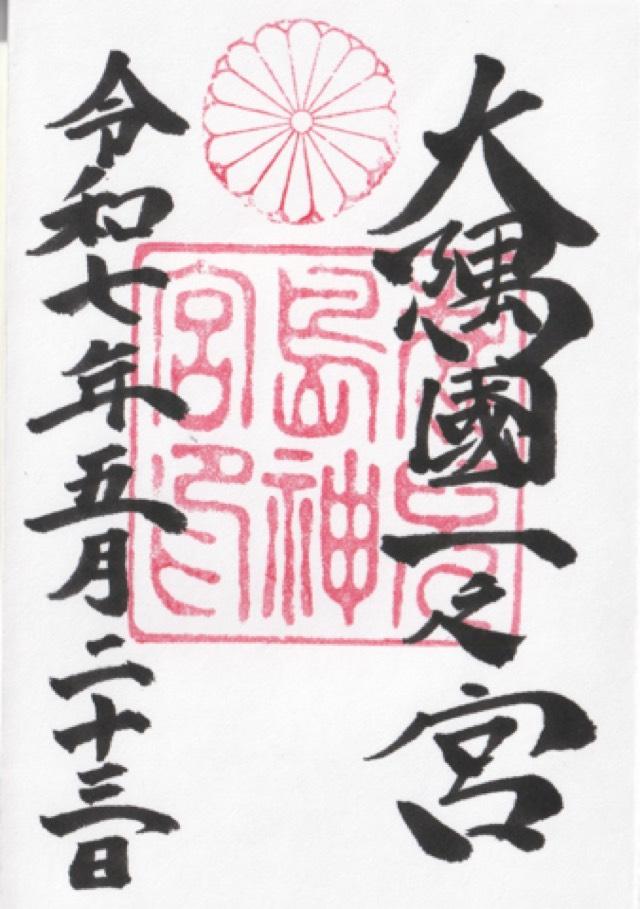 大隅國一之宮
鹿兒
島神
宮印
令和七年五月二十三日